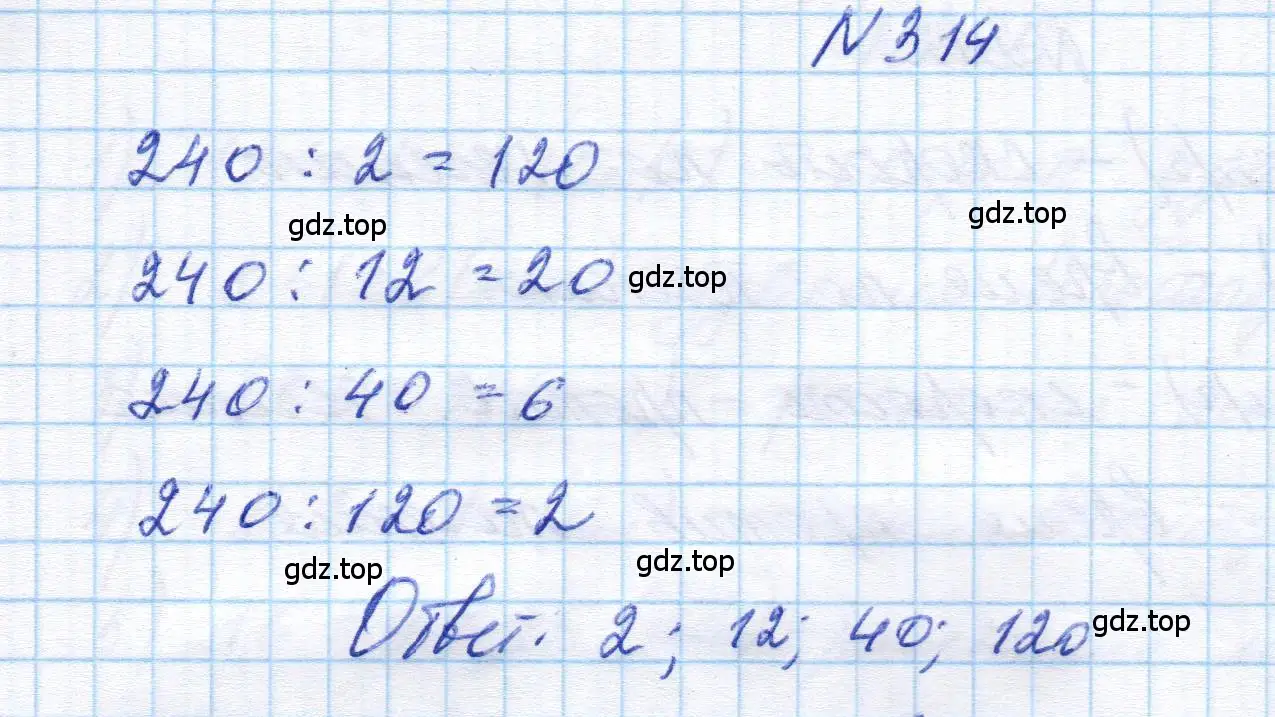 N 314
240 : 2 = 120
gdz.top
gdz.top
240 : 12 = 20 gdz.top
240 : 40 = 6
240 : 120 = 2
gdz.top
gdz.top
Ответ: 2; 12; 40; 120 gdz.top